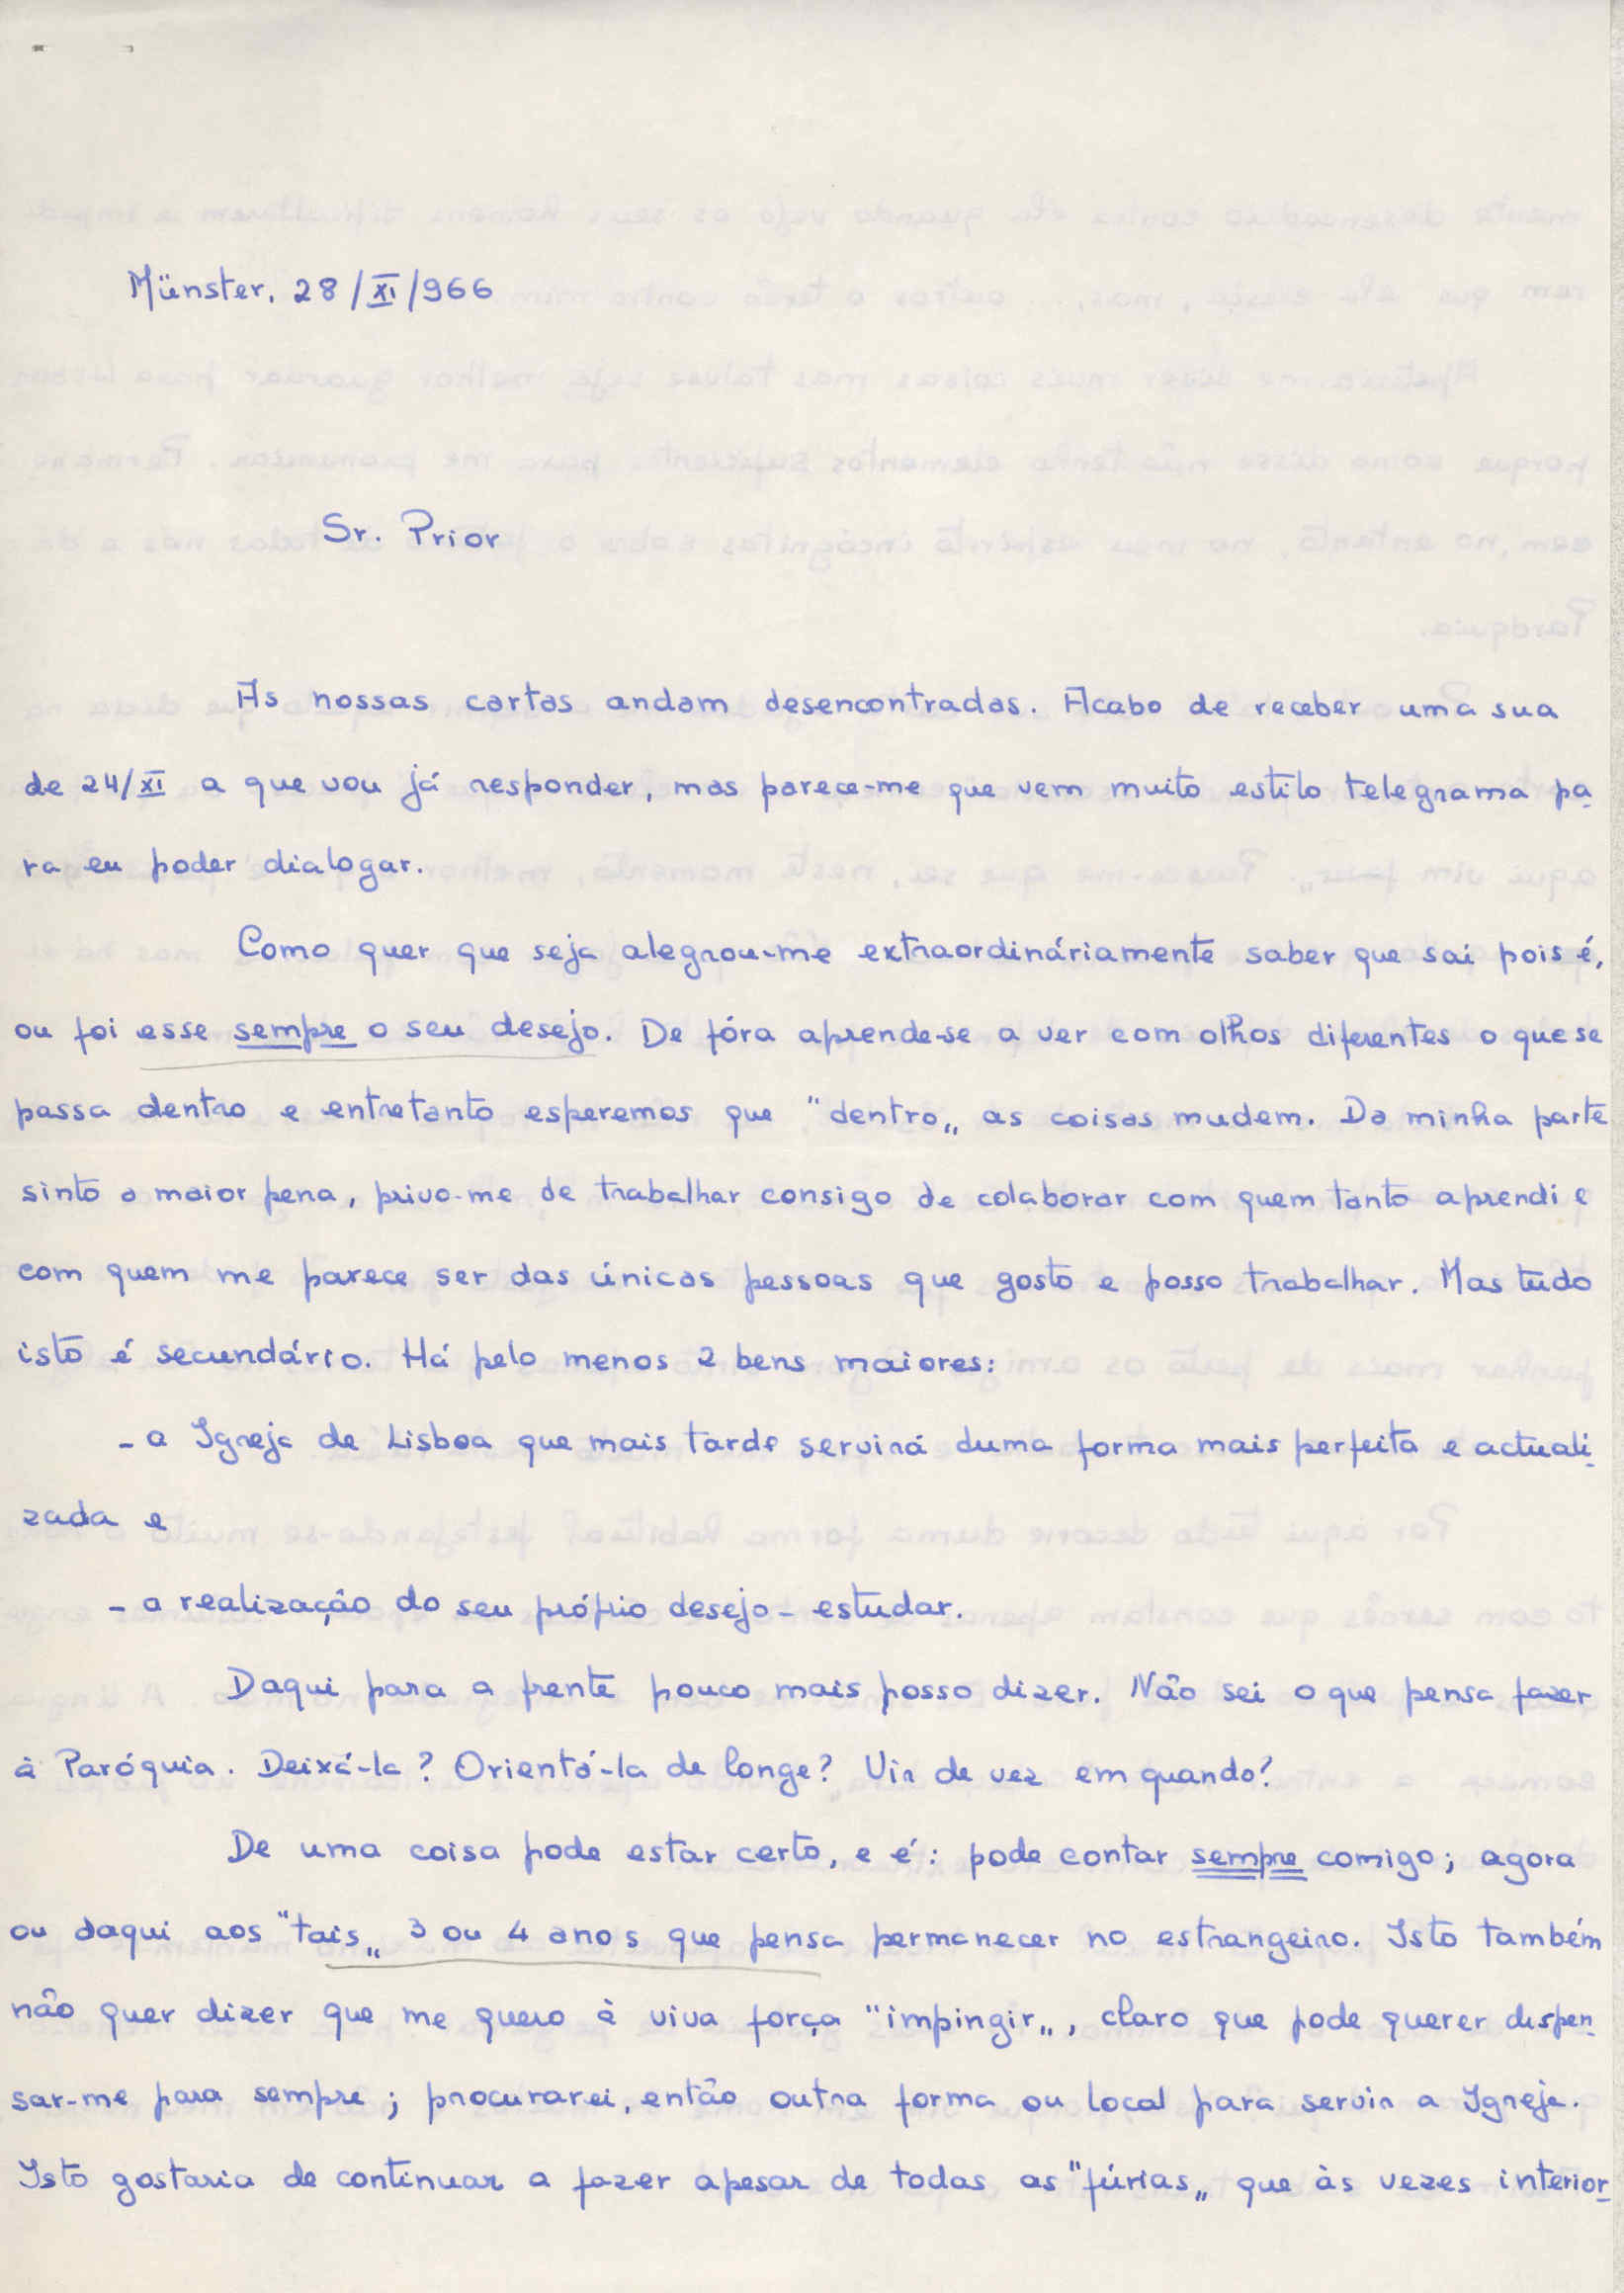 Münster, 28/XI/966
Sr. Prior
As nossas cartas andam desencontradas. Acabo de receber uma sua
de 24/XI a que vou já responder, mas parece-me que vem muito estilo telegrama pa
ra eu poder dialogar.
Como quer que seja alegrou-me extraordináriamente saber que sai pois é,
ou foi esse sempre o seu desejo. De fóra aprende-se a ver com olhos diferentes o que se
passa dentro e entretanto esperemos que "dentro„ as coisas mudem. Da minha parte
sinto a maior pena, privo-me de trabalhar consigo de colaborar com quem tanto aprendi e
com quem me parece ser das únicas pessoas que gosto e posso trabalhar. Mas tudo
isto é secundário. Há pelo menos 2 bens maiores:
- a Igreja de Lisboa que mais tarde servirá duma forma mais perfeita e actuali
zada e
- a realização do seu próprio desejo - estudar.
Daqui para a frente pouco mais posso dizer. Não sei o que pensa fazer
à Paróquia. Deixá-la? Orientá-la de longe? Vir de vez em quando?
De uma coisa pode estar certo, e é: pode contar sempre comigo; agora
ou daqui aos "tais„ 3 ou 4 anos que pensa permanecer no estrangeiro. Isto também
não quer dizer que me quero à viva força "impingir„, claro que pode querer dispen
sar-me para sempre; procurarei, então outra forma ou local para servir a Igreja.
Isto gostaria de continuar a fazer apesar de todas as "fúrias„ que às vezes interior